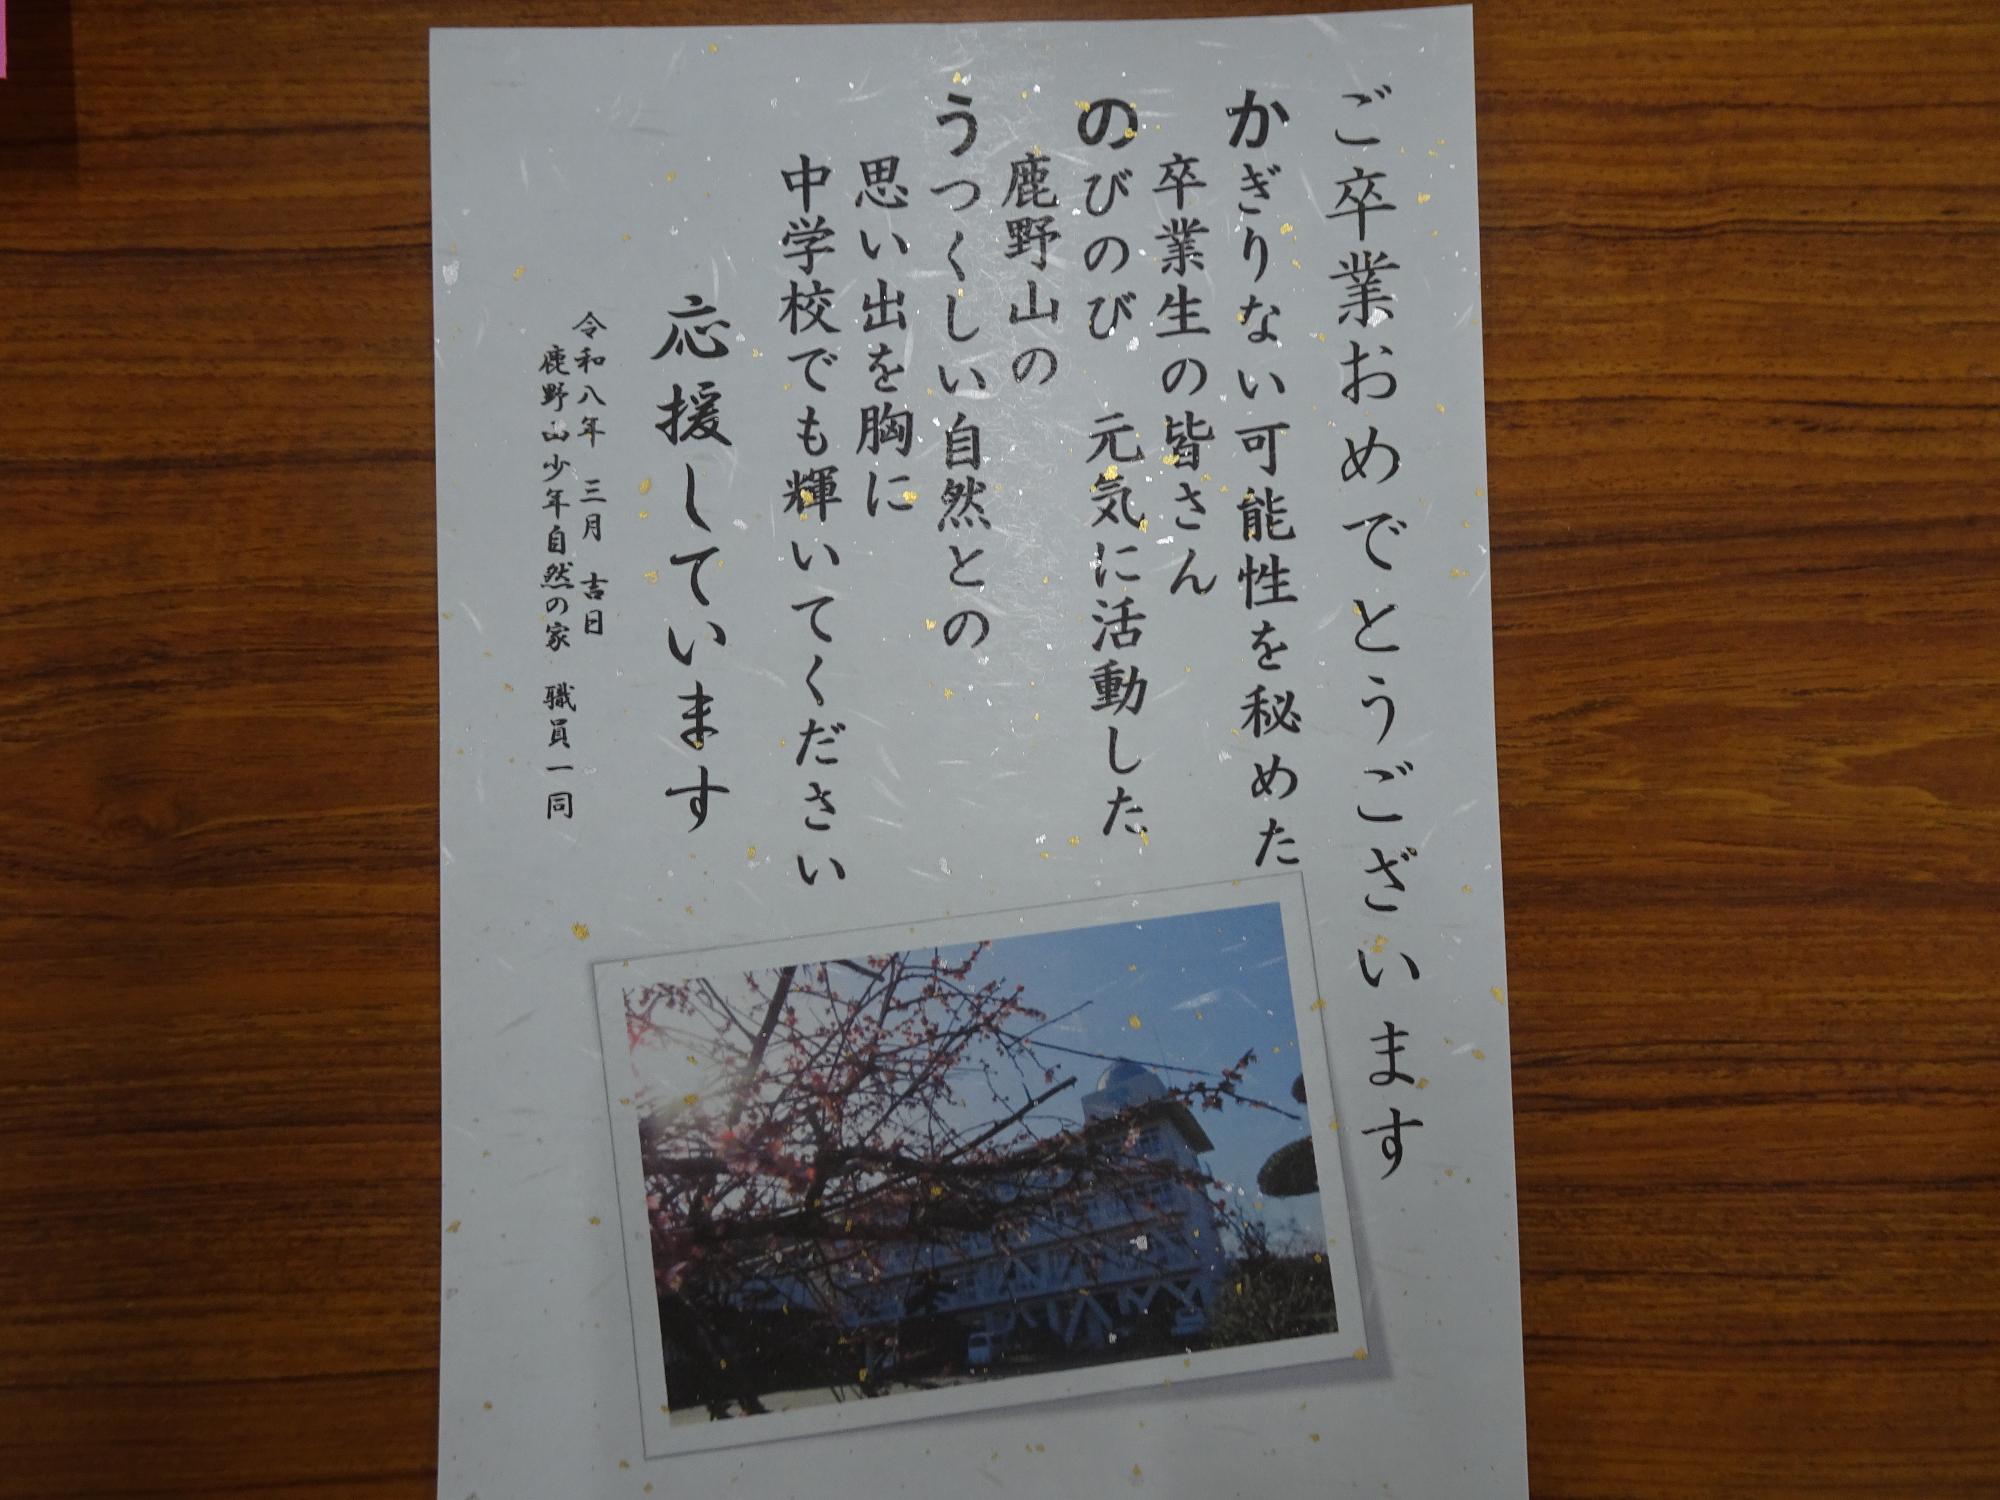 ご卒業おめでとうございます
かぎりない可能性を秘めた
卒業生の皆さん
のびのび 元気に活動した
鹿野山の
うつくしい自然との
思い出を胸に
中学校でも輝いてください
応援しています
令和八年 三月 吉日
鹿野山少年自然の家 職員一同